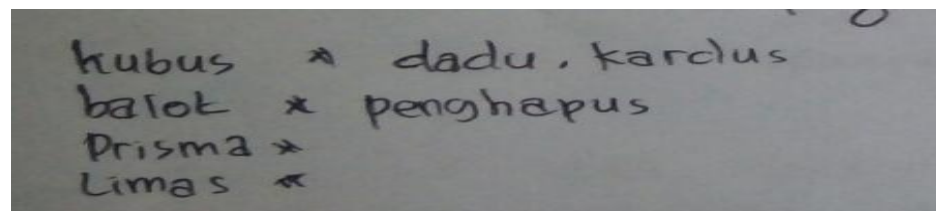 kubus * dadu, kardus
balok * penghapus
Prisma *
Limas *